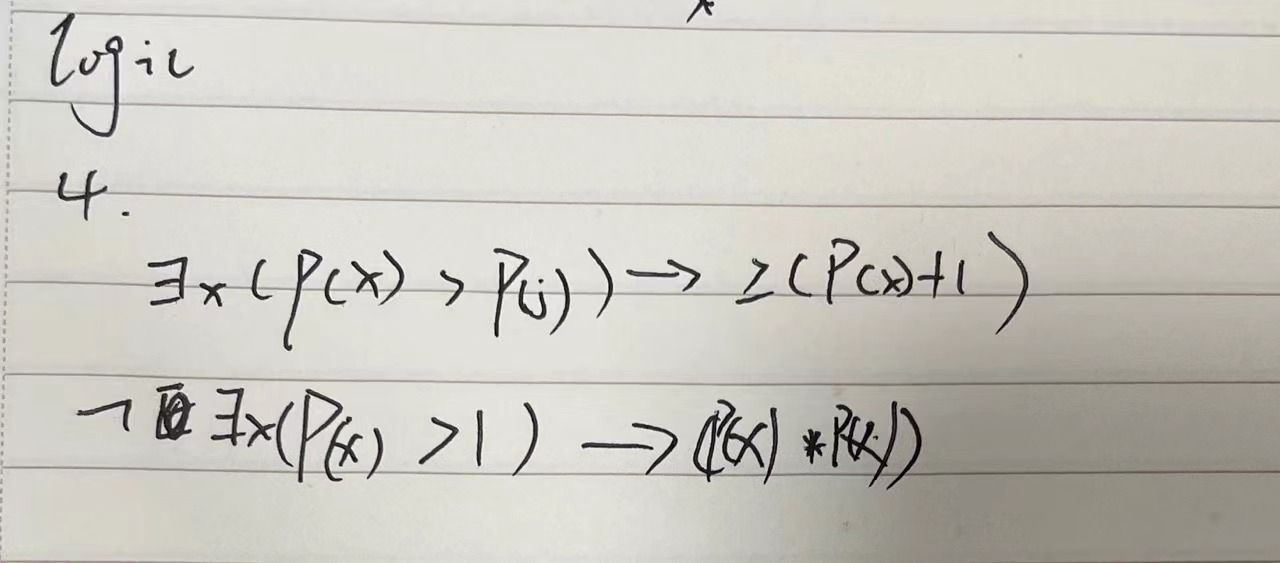 logic
4.
∃x (P(x) > P(j)) → ≥ (P(x)+1)
¬ ∃x(P(x) >1) → (P(x) * P(x))